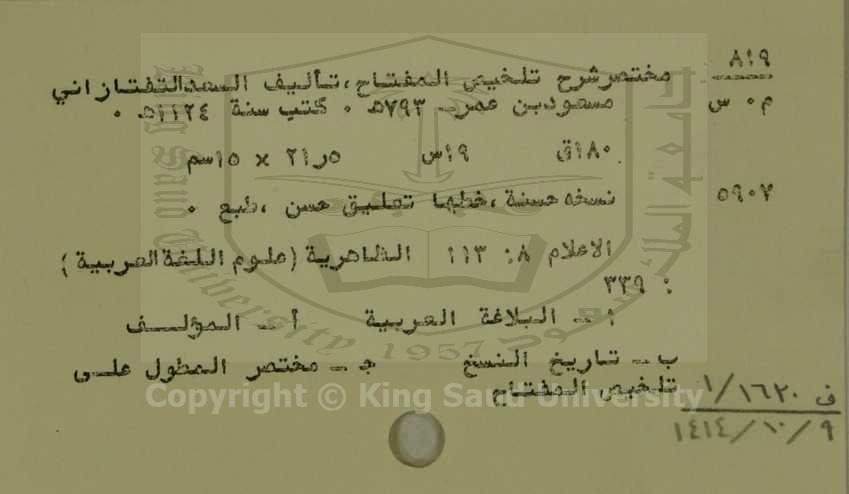 ٨١٩
م٠ س
مختصر شرح تلخيص المفتاح ،تأليف السعد التفتازاني
مسعود بن عمر ـ ٧٩٣هـ ٠ كتب سنة ١١٢٤هـ ٠
١٨٠ق ١٩س ٢١ر٥ × ١٥سم
٥٩٠٧
نسخه حسنة ،خطها تعليق حسن ،طبع ٠
الاعلام ٨: ١١٣ الظاهرية (علوم اللغة العربية)
: ٣٣٩
١ ـ البلاغة العربية أ ـ المؤلف
ب ـ تاريخ النسخ ج ـ مختصر المطول على
تلخيص المفتاح
ف ١٦٢٠/ ١
١٤١٤/١٠/٩
King Saud University
1957
Copyright © King Saud University